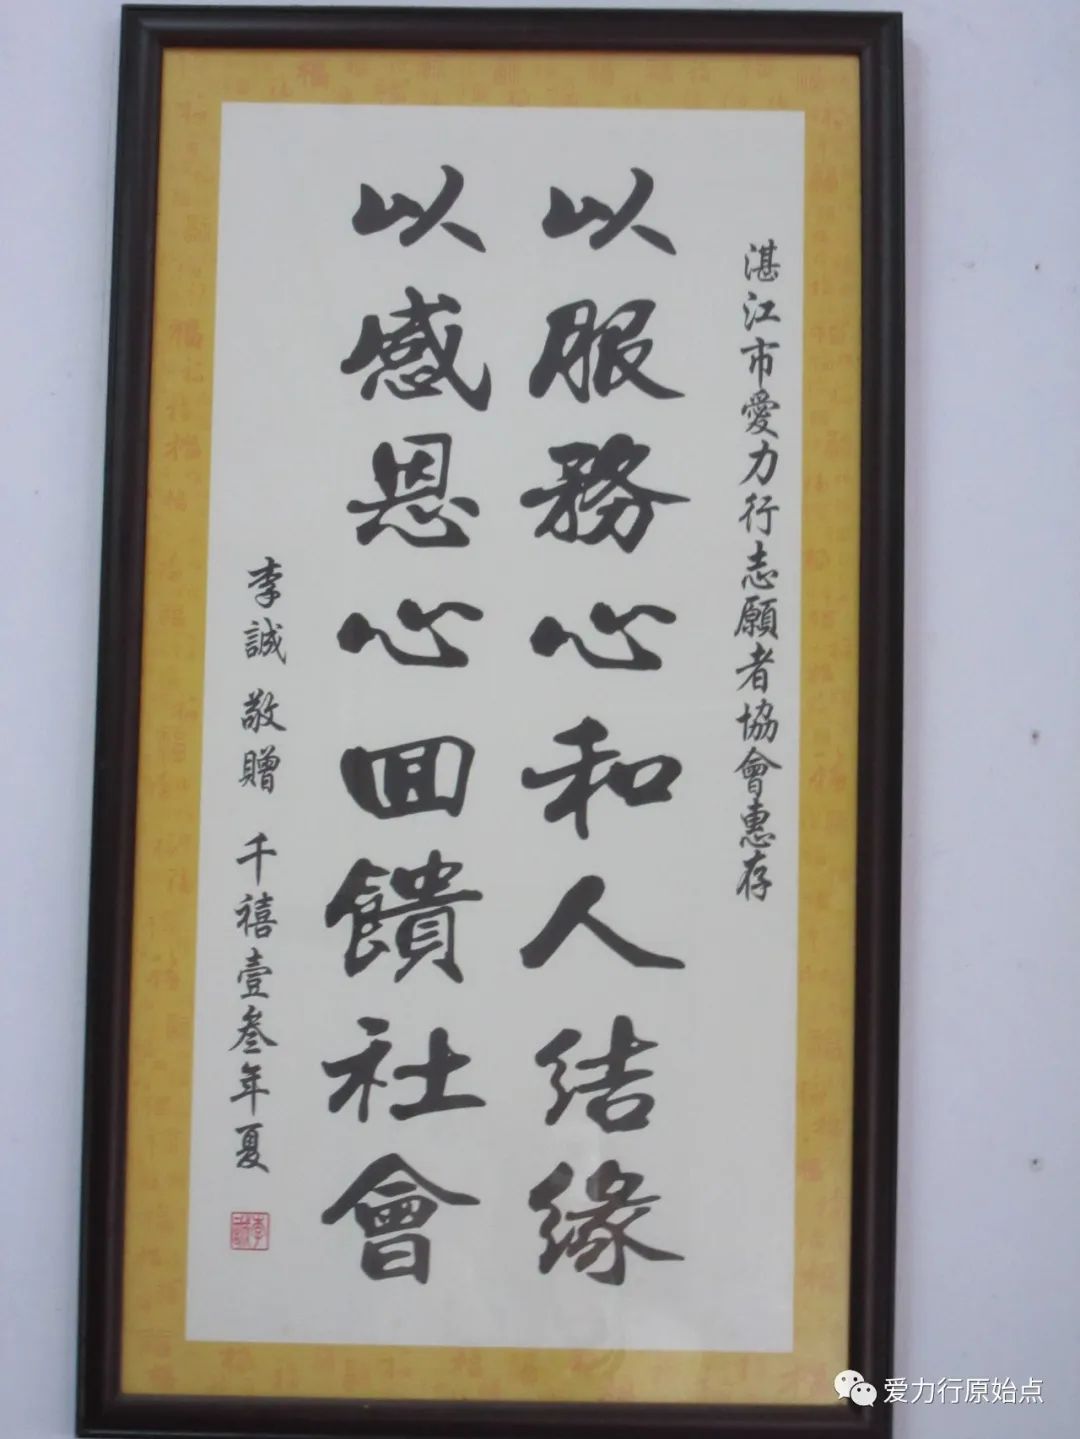 湛江市愛力行志願者協會惠存
以服務心和人结缘
以感恩心回饋社會
李誠 敬贈 千禧壹叁年夏
李誠
爱力行原始点